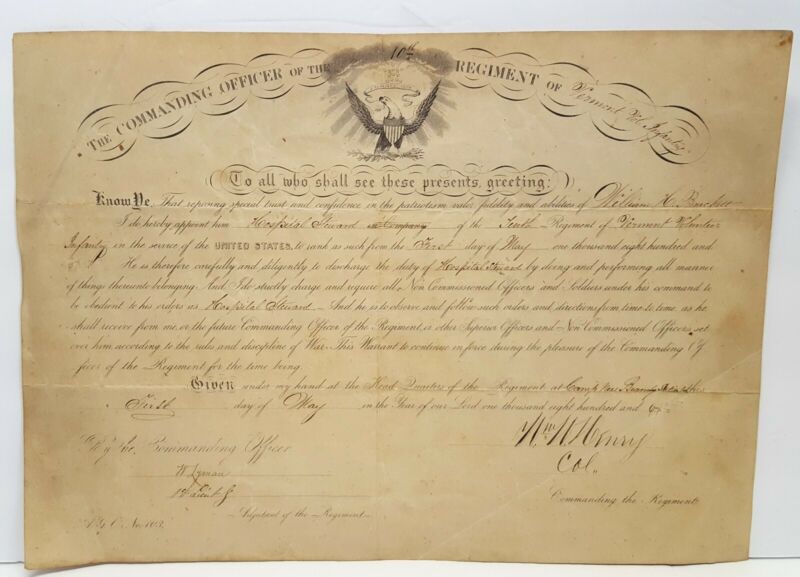 10th
THE COMMANDING OFFICER OF THE REGIMENT OF Vermont Vol. Infantry
To all who shall see these presents, greeting:
Know Ye, That reposing special trust and confidence in the patriotism, valor, fidelity and abilities of William H.
I do hereby appoint him Hospital Steward in Company of the Tenth Regiment of Vermont Volunteer
Infantry in the service of the UNITED STATES, to rank as such from the First day of May one thousand eight hundred and
He is therefore carefully and diligently to discharge the duty of Hospital Steward by doing and performing all manner
of things thereunto belonging. And I do strictly charge and require all Non Commissioned Officers and Soldiers under his command to
be obedient to his orders as Hospital Steward And he is to observe and follow such orders and directions from time to time, as he
shall receive from me, or the future Commanding Officer of the Regiment, or other Superior Officers and Non Commissioned Officers set
over him according to the rules and discipline of War. This Warrant to continue in force during the pleasure of the Commanding Of
ficer of the Regiment for the time being.
Given under my hand at the Head Quarters of the Regiment at Camp near
day of May in the Year of our Lord one thousand eight hundred and
Wm W Henry
Commanding Officer
Col.
Lyman
Commanding the Regiment
Adjutant of the Regiment
A.G.O. No. 103.